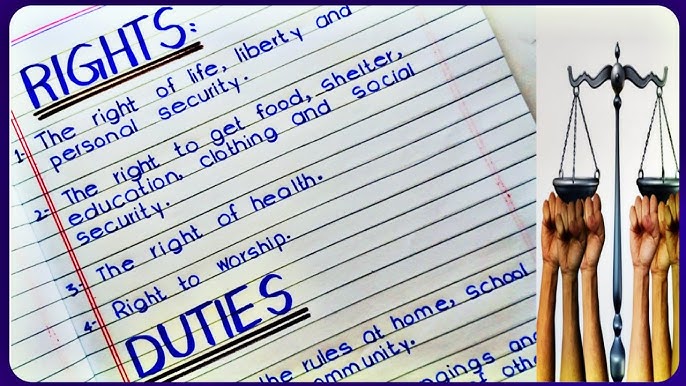 RIGHTS:
1- The right of life, liberty and
personal security.
2- The right to get food, shelter,
education, clothing and social
security.
3- The right of health.
4- Right to worship.
DUTIES
the rules at home, school
and